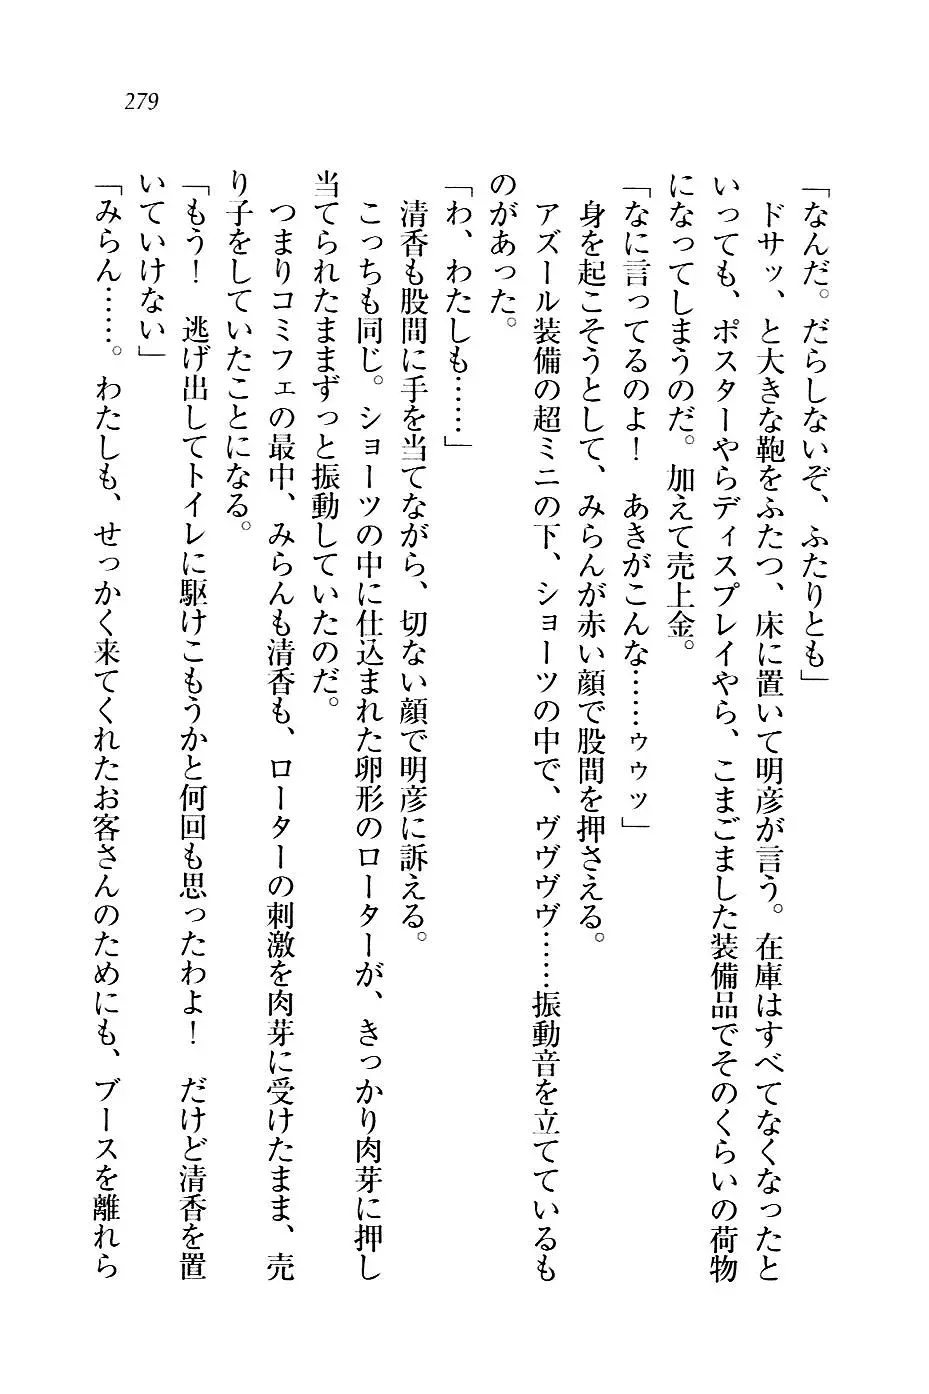 279
「なんだ。だらしないぞ、ふたりとも」
ドサッ、と大きな鞄をふたつ、床に置いて明彦が言う。在庫はすべてなくなったと
いっても、ポスターやらディスプレイやら、こまごました装備品でそのくらいの荷物
になってしまうのだ。加えて売上金。
「なに言ってるのよ！　あきがこんな……ゥゥッ」
身を起こそうとして、みらんが赤い顔で股間を押さえる。
アズール装備の超ミニの下、ショーツの中で、ヴヴヴヴ……振動音を立てているも
のがあった。
「わ、わたしも……」
清香も股間に手を当てながら、切ない顔で明彦に訴える。
こっちも同じ。ショーツの中に仕込まれた卵形のローターが、きっかり肉芽に押し
当てられたままずっと振動していたのだ。
つまりコミフェの最中、みらんも清香も、ローターの刺激を肉芽に受けたまま、売
り子をしていたことになる。
「もう！　逃げ出してトイレに駆けこもうかと何回も思ったわよ！　だけど清香を置
いていけない」
「みらん……。わたしも、せっかく来てくれたお客さんのためにも、ブースを離れら